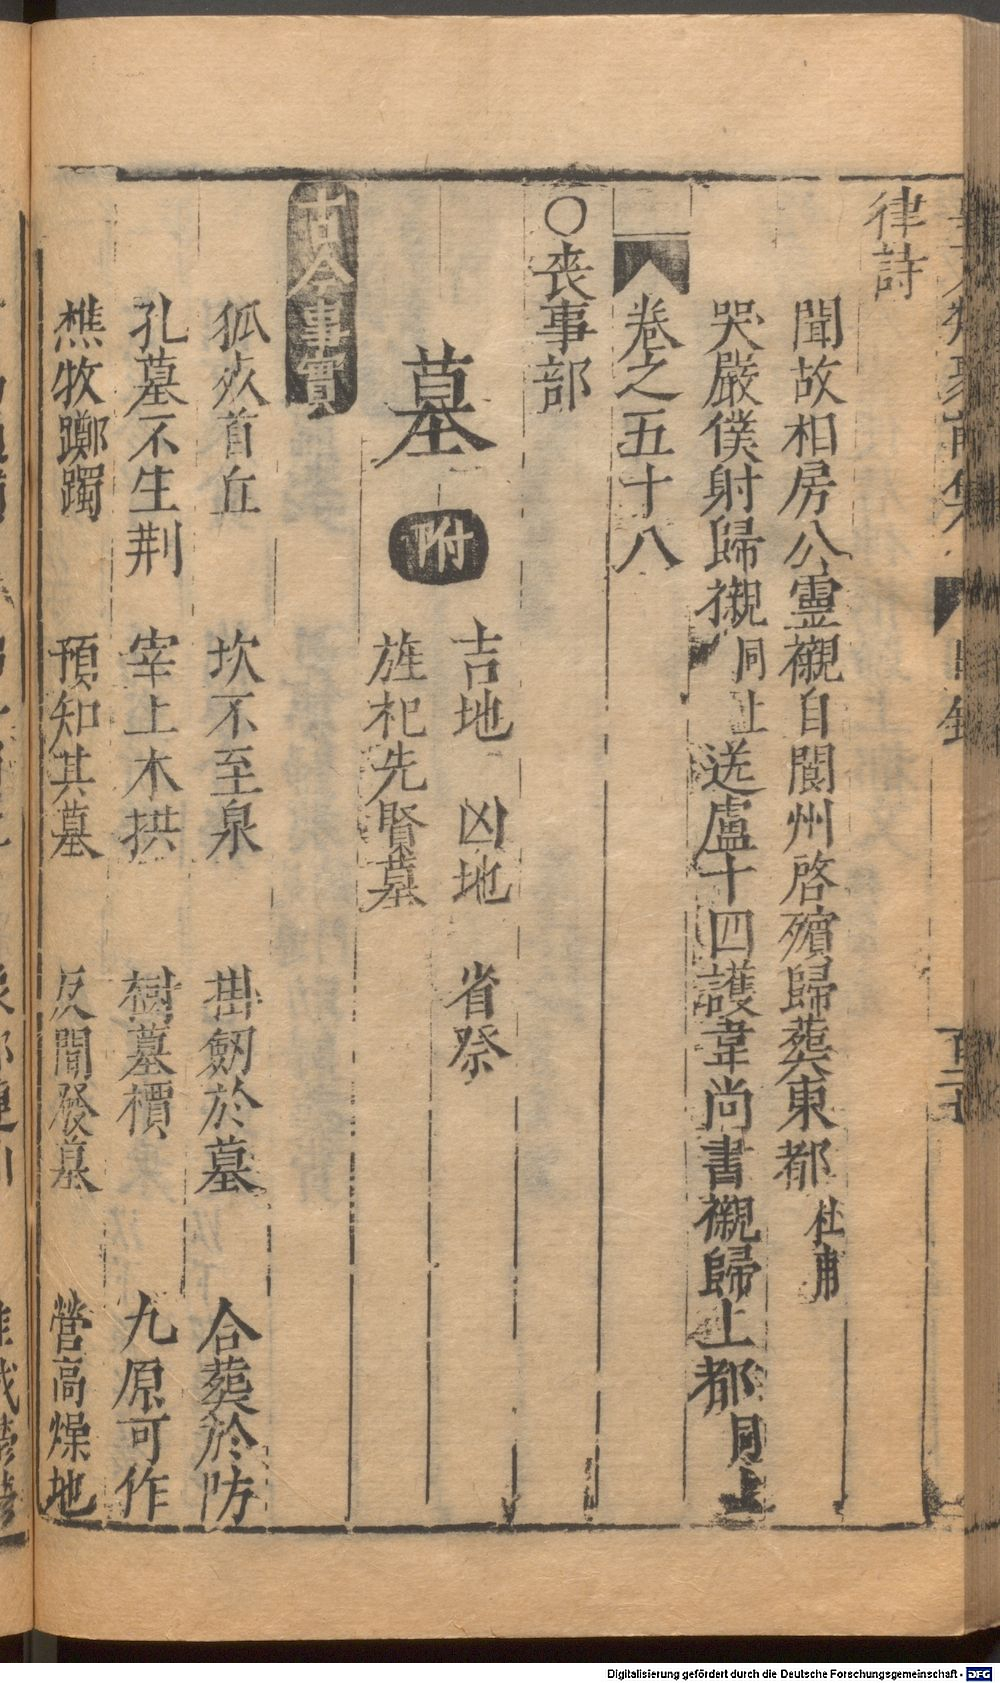 律詩
聞故相房公靈櫬自閬州啓殯歸葬東都 杜甫
哭嚴僕射歸櫬 同上 送盧十四護韋尚書櫬歸上都 同上
卷之五十八
○喪事部
墓 附 吉地 凶地 省祭
旌祀先賢墓
古今事實
狐死首丘 坎不至泉 掛劒於墓 合葬於防
孔墓不生荆 宰上木拱 樹墓檟 九原可作
樵牧躑躅 預知其墓 反間發墓 營高燥地
Digitalisierung gefördert durch die Deutsche Forschungsgemeinschaft - DFG